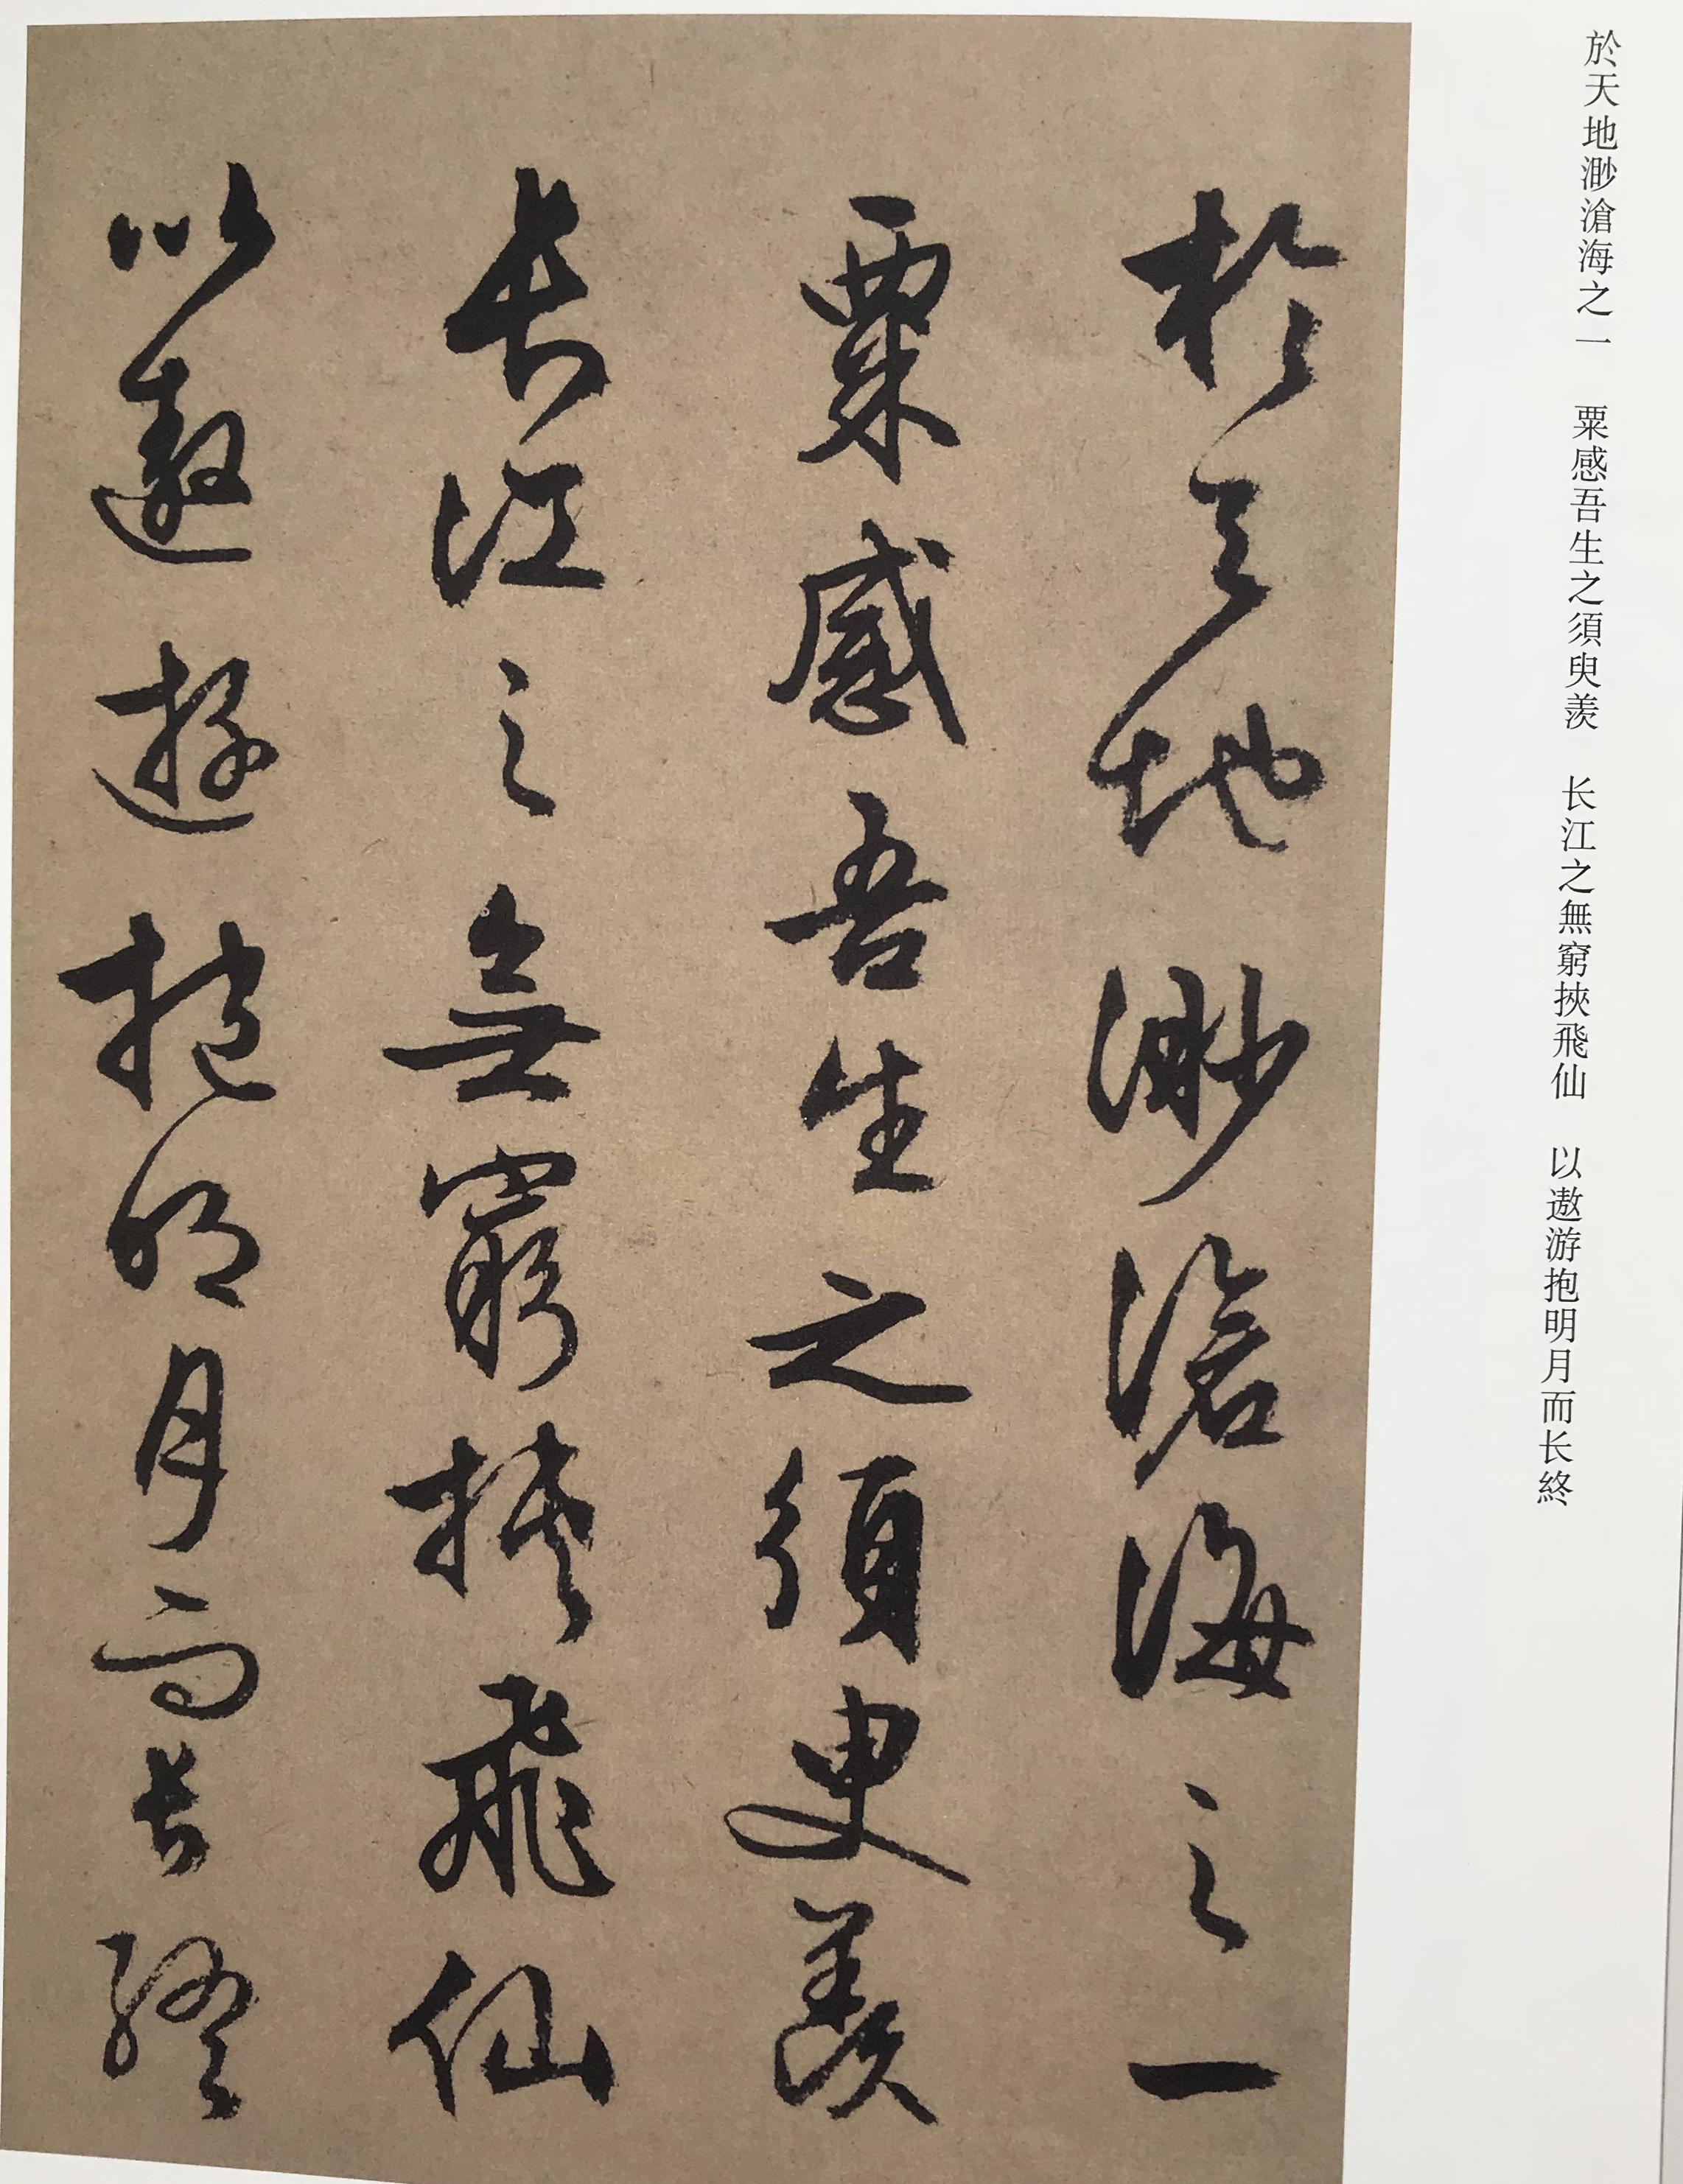 於天地渺滄海之一　粟感吾生之須臾羨　长江之無窮挾飛仙　以遨游抱明月而长終
於天地渺滄海之一
粟感吾生之須臾羨
長江之無窮挾飛仙
以遨遊抱明月而長終